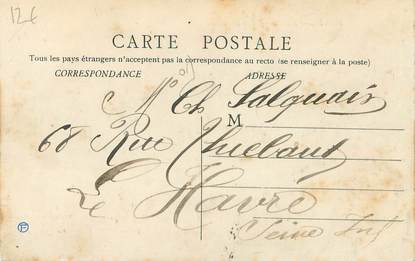 12€
CARTE POSTALE
Tous les pays étrangers n'acceptent pas la correspondance au recto (se renseigner à la poste)
CORRESPONDANCE
ADRESSE
M
Ch Salquain
68 Rue Thiebaut
Le Havre
Seine Inf